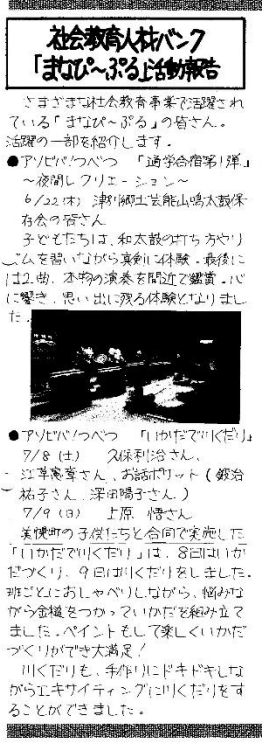 社会教育人材バンク
「まなぴ～ぷる」活動報告
さまざまな社会教育事業で活躍され
ている「まなぴ～ぷる」の皆さん。
活躍の一部を紹介します。
●アソビバ!つべつ 「通学合宿第1弾」
～夜間レクリエーション～
6/22(木) 津別郷土芸能山鳴太鼓保
存会の皆さん
子どもたちは、和太鼓の打ち方やリ
ズムを習いながら真剣に体験。最後に
は2曲、本物の演奏を間近で鑑賞。心
に響き、思い出に残る体験となりまし
た。
●アソビバ!つべつ 「いかだで川くだり」
7/8 (土) 久保利治さん、
江草寛章さん、お話ポケット(鍛治
祐子さん、深田陽子さん)
7/9 (日) 上原 悟さん
美幌町の子供たちと合同で実施した
「いかだで川くだり」は、8日はいか
だづくり、9日は川くだりをしました。
班ごとにおしゃべりしながら、悩みな
がら金槌をつかっていかだを組み立て
ました。ペイントもして楽しくいかだ
づくりができ大満足!
川くだりも、手作りにドキドキしな
がらエキサイティングに川くだりをす
ることができました。